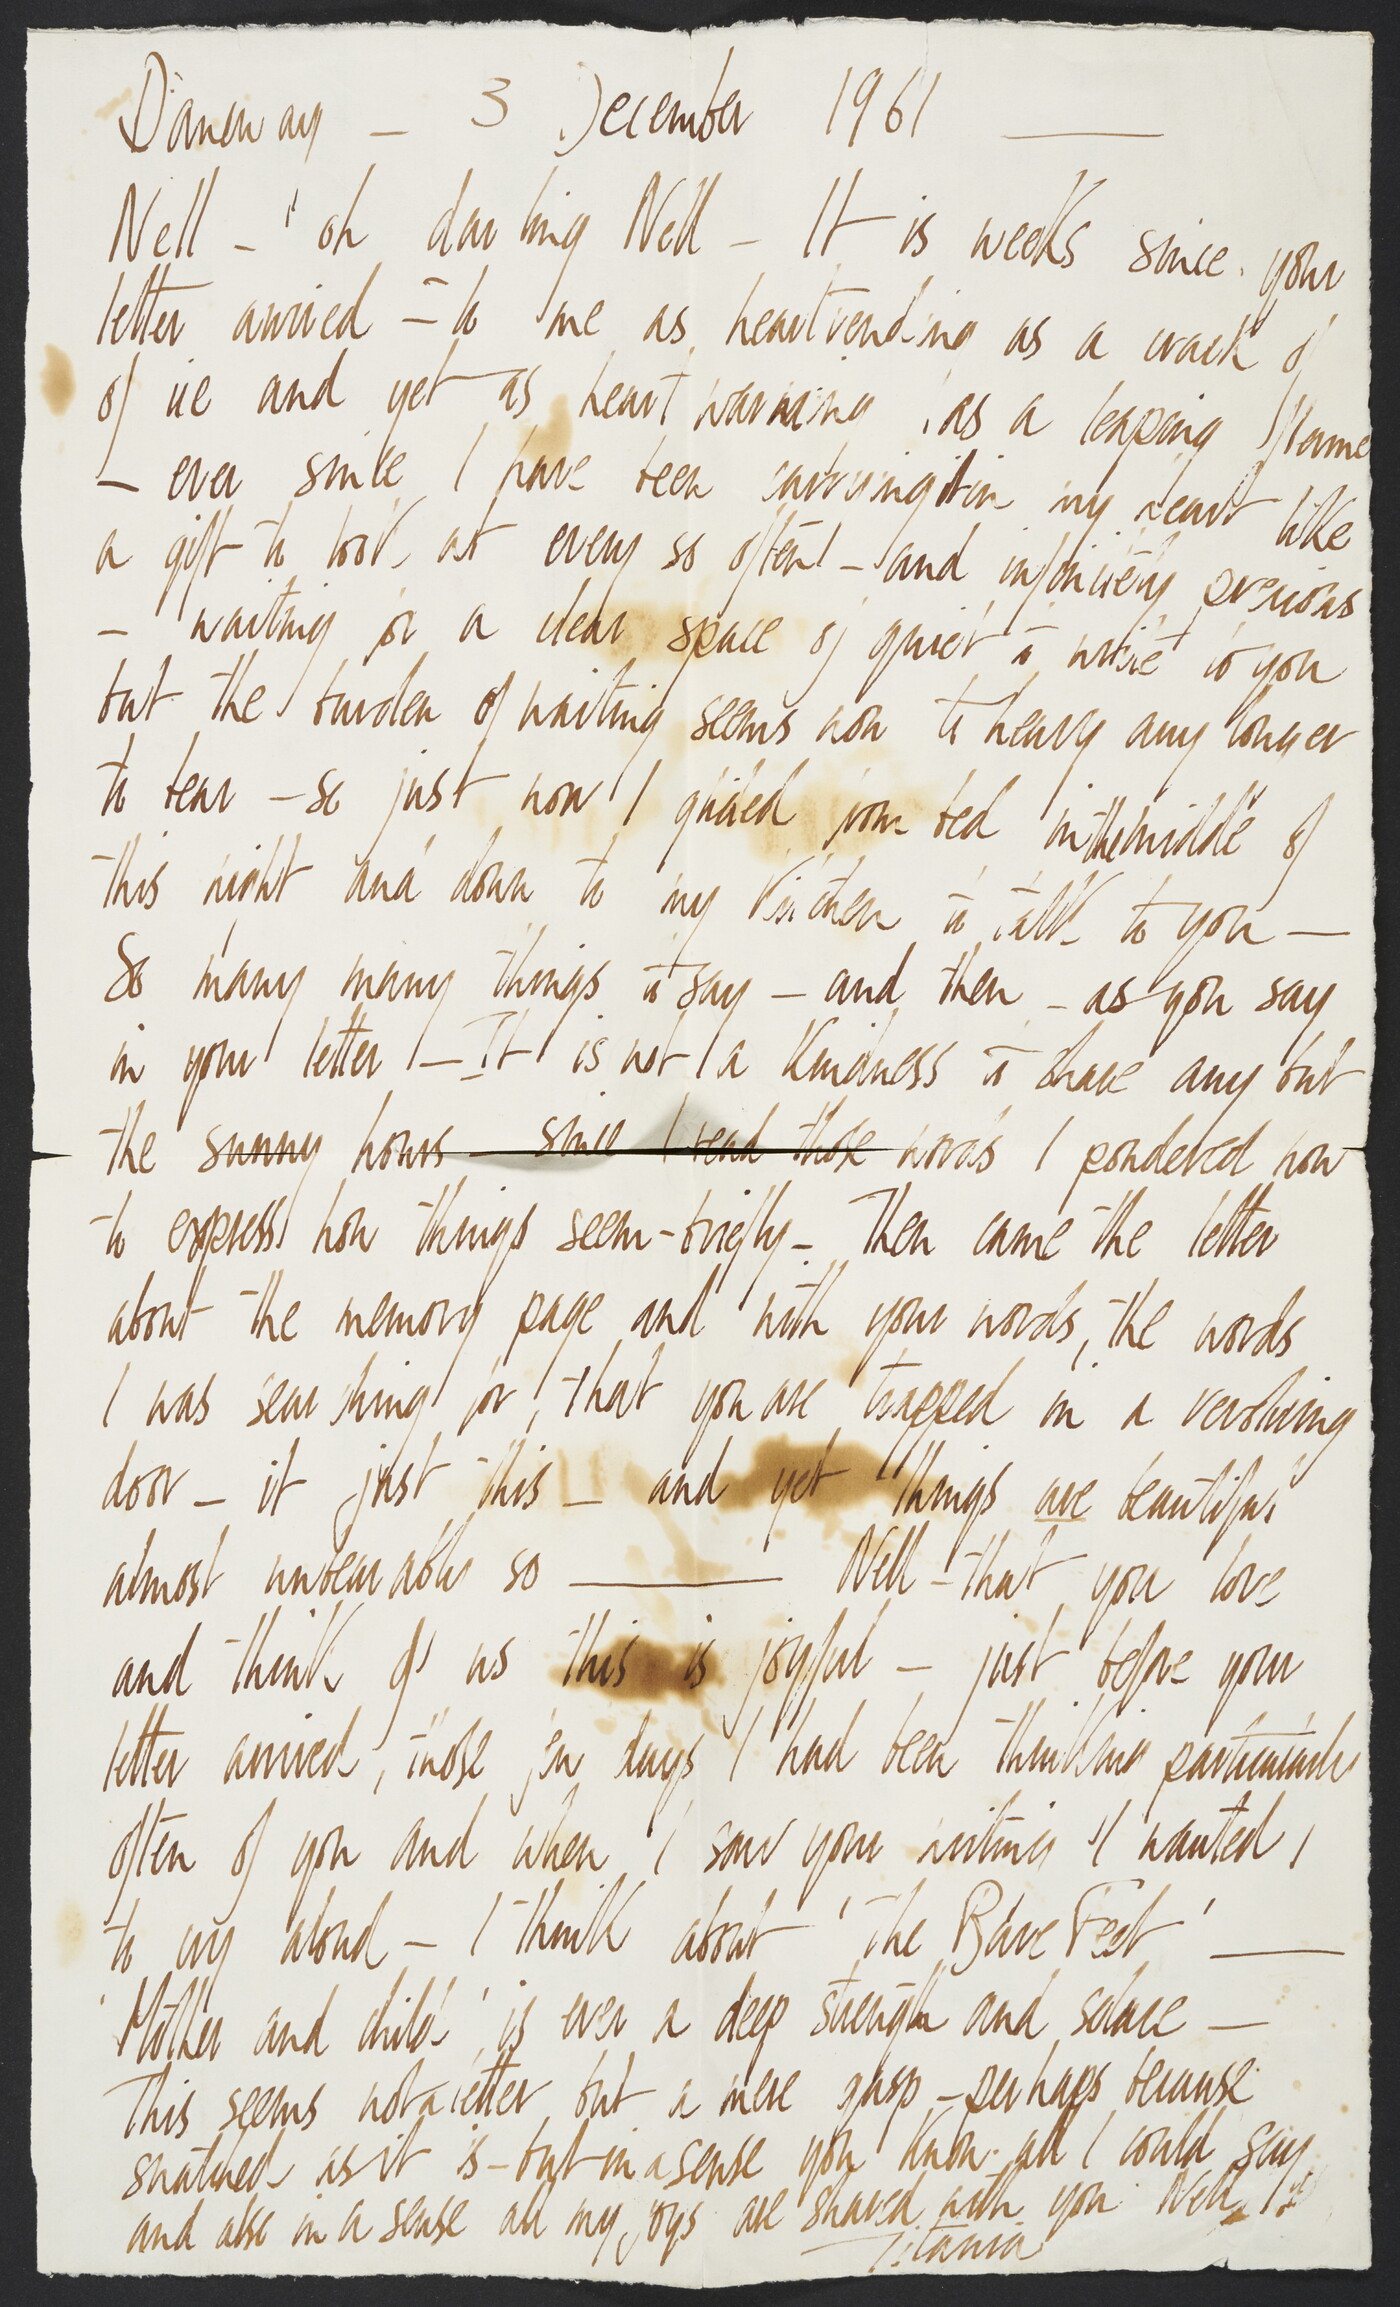 Daneway — 3 December 1961 —
Nell — oh darling Nell — It is weeks since your
letter arrived — to me as heartrending as a crack of
of ice and yet as heart warming as a leaping flame
— ever since I have been carrying it in my heart like
a gift to look at every so often — and infinitely precious
— waiting for a clear space of quiet to write to you
but the burden of waiting seems now to heavy any longer
to bear — so just now I glided from bed in the middle of
this night and down to my kitchen to talk to you —
So many many things to say — and then — as you say
in your letter — It is not a kindness to share any but
the sunny hours — since I read those words I pondered how
to express how things seem — briefly — Then came the letter
about the memory page and with your words, the words
I was searching for, that you are trapped in a revolving
door — it just this — and yet things are beautiful
almost unbearably so — Nell — that you love
and think of us this is joyful — just before your
letter arrived, those few days I had been thinking particularly
often of you and when I saw your writing I wanted
to cry aloud — I think about 'The Bare Feet' —
'Mother and child' is ever a deep strength and solace —
This seems not a letter but a mere gasp — perhaps because
snatched as it is — but in a sense you know all I could say
and also in a sense all my joys are shared with you Nell
Titania